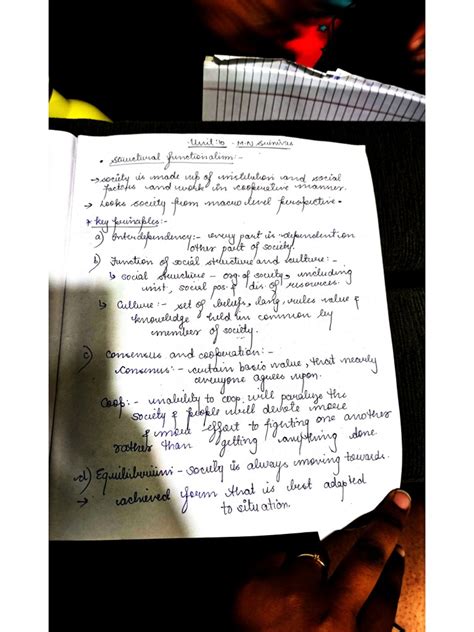 Unit 10 - M.N Srinivas
• Structural functionalism:-
→ society is made up of institution and social
factors and work in cooperative manner.
→ Looks society from macro level perspective.
* key principles:-
a) Interdependency:- every part is dependent on
other part of society.
b) Function of social structure and culture:-
↳ social structure - org. of society, including
inst, social pos. & dis. of resources.
↳ Culture:- set of beliefs, lang, rules value &
knowledge held in common by
member of society.
c) Consensus and cooperation:-
Consensus:- certain basic value, that nearly
everyone agrees upon.
Coop:- inability to coop. will paralyze the
society & people will devote more
& more effort to fighting one another
rather than getting anything done.
d) Equilibrium - society is always moving towards.
→ achieved form that is best adapted
to situation.